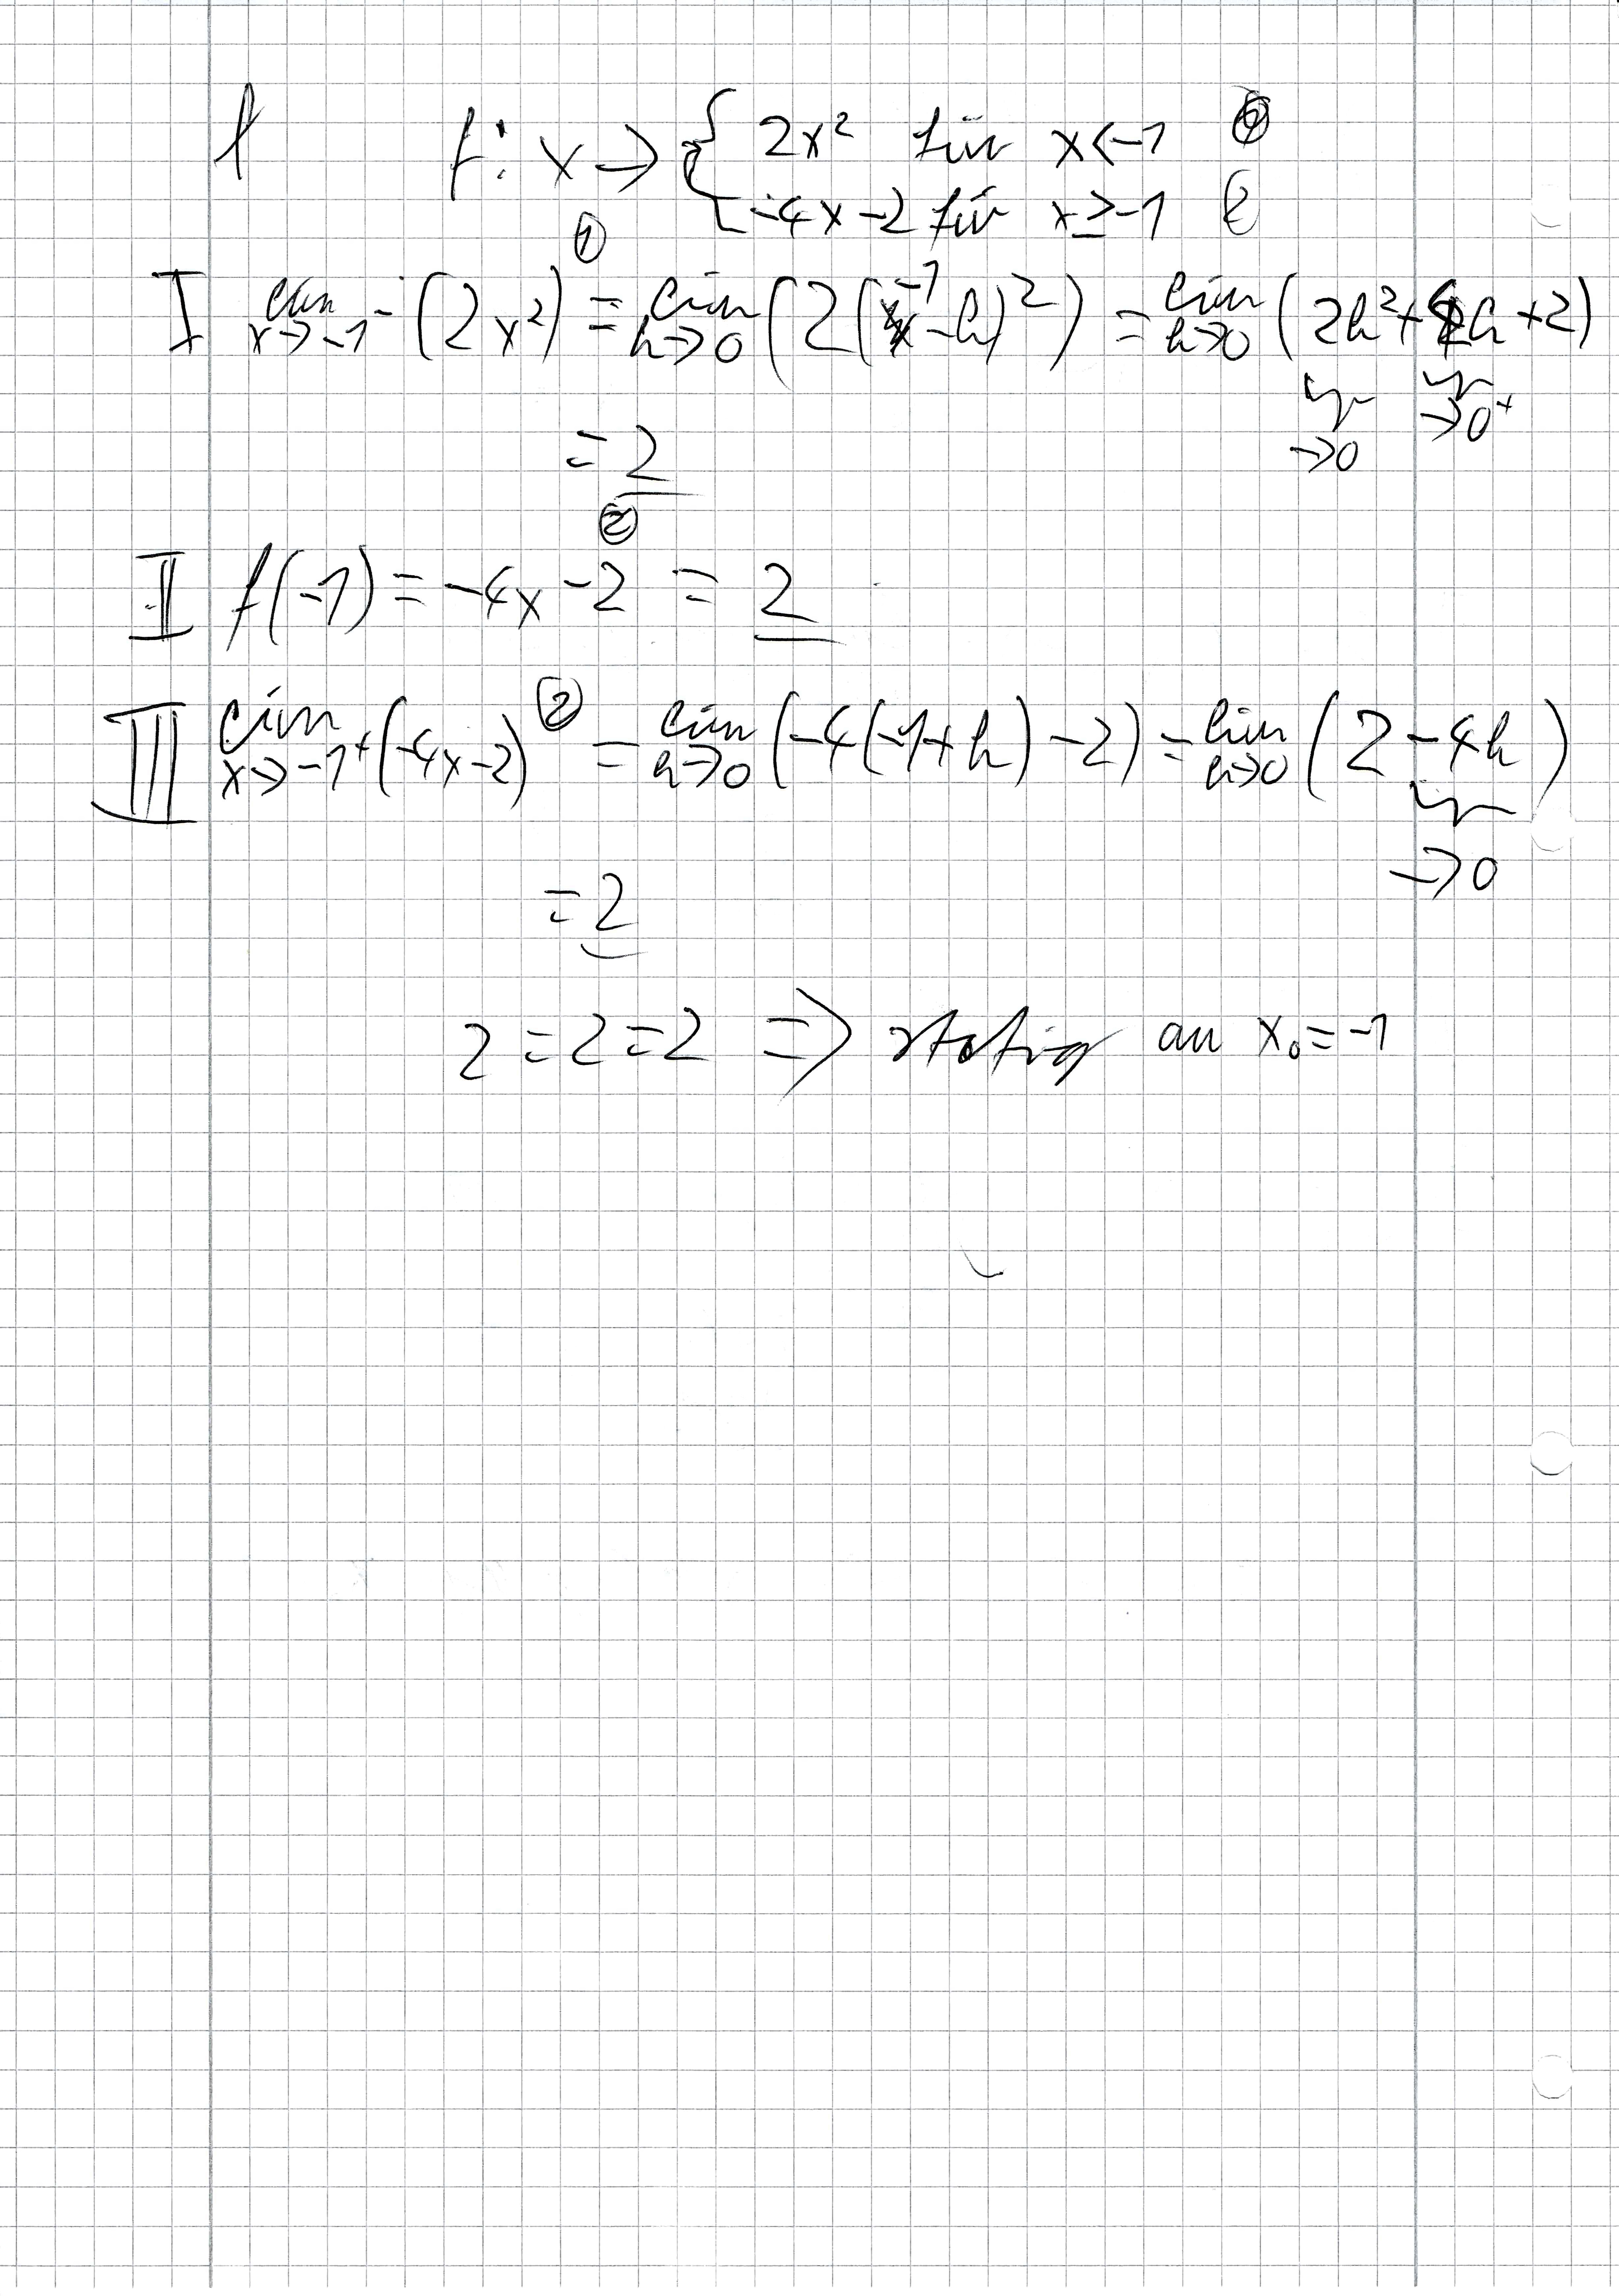 f f: x → { 2x² für x < -1 ①
-4x - 2 für x ≥ -1 ②
I lim x→-1⁻ (2x²) ①= lim h→0 (2(-1-h)²) = lim h→0 (2h² + 4h + 2)
→0 →0⁺
= 2
II f(-1) ②= -4x - 2 = 2
III lim x→-1⁺ (-4x-2) ② = lim h→0 (-4(-1+h) - 2) = lim h→0 (2 - 4h)
→0
= 2
2 = 2 = 2 ⇒ stetig an x₀ = -1